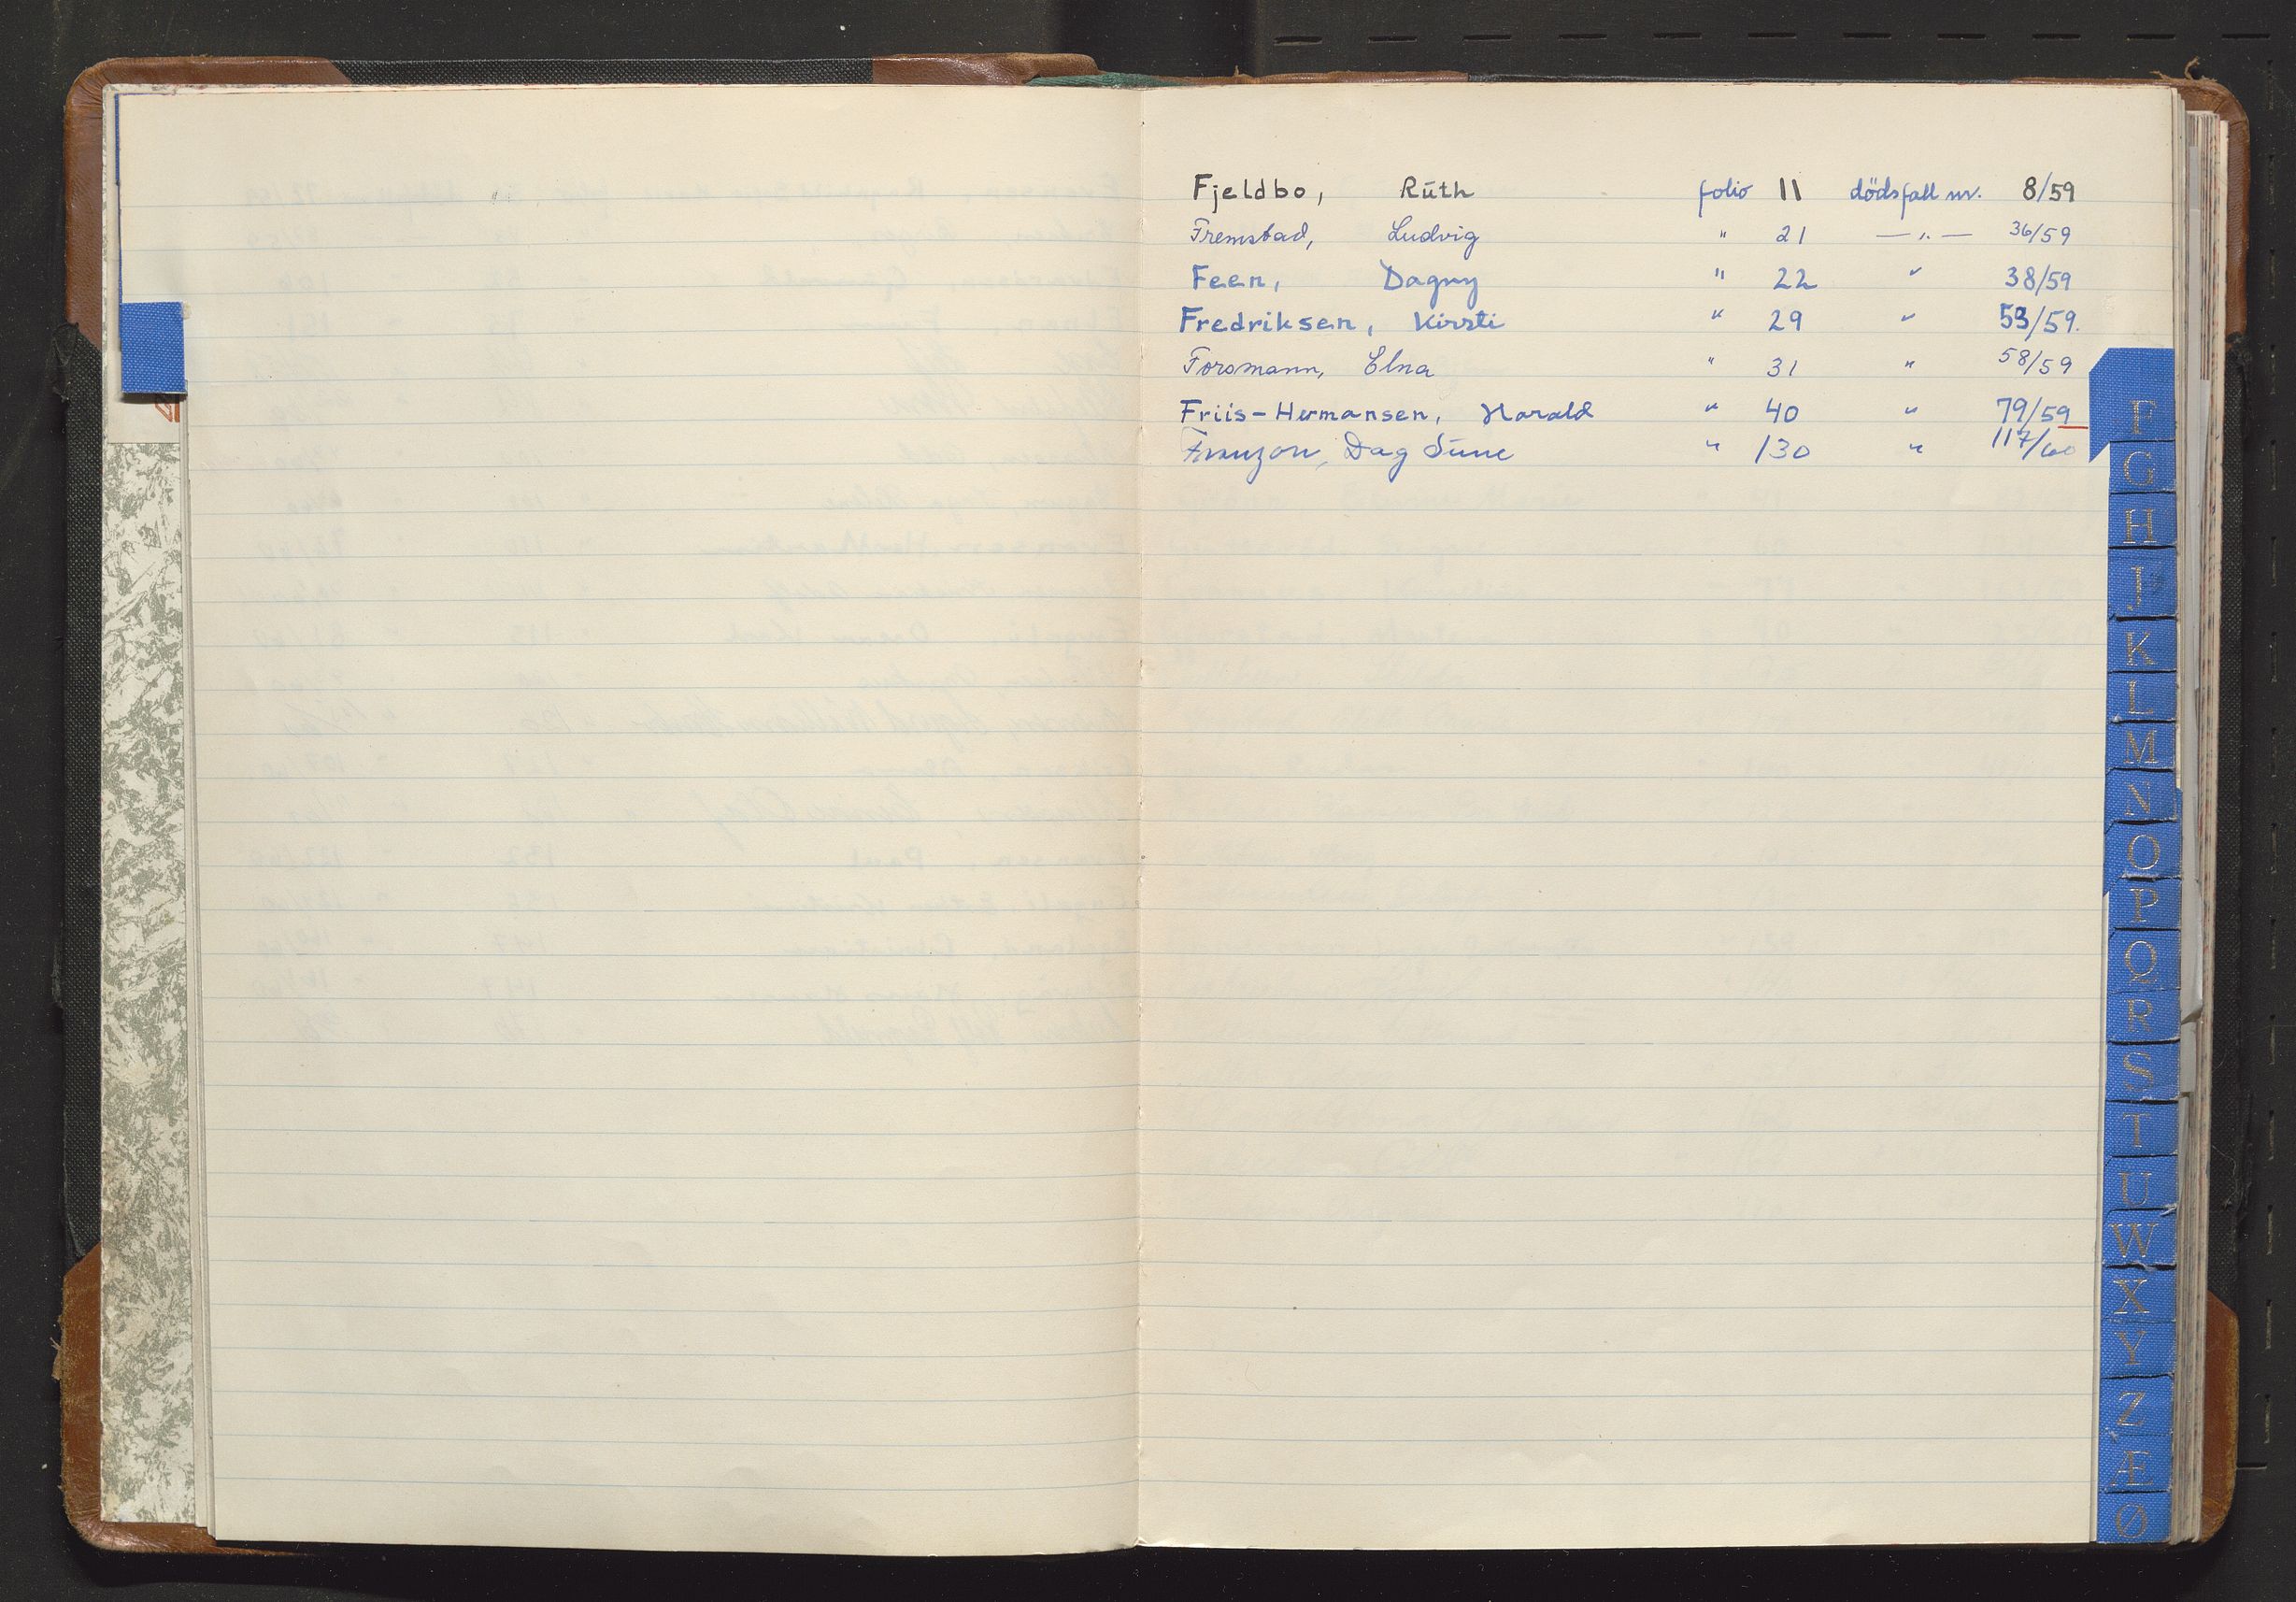 Fjeldbo, Rūth folio 11 dödsfall nr. 8/59
Fremstad, Ludvig " 21 — " — 36/59
Feen, Dagny " 22 " 38/59
Fredriksen, Kirsti " 29 " 53/59.
Forsmann, Elna " 31 " 58/59
Friis-Hermansen, Harald " 40 " 79/59
Franzon, Dag Sune " 130 " 117/60
F
G
H
J
K
L
M
N
O
P
Q
R
S
T
U
W
X
Y
Z
Æ
Ø